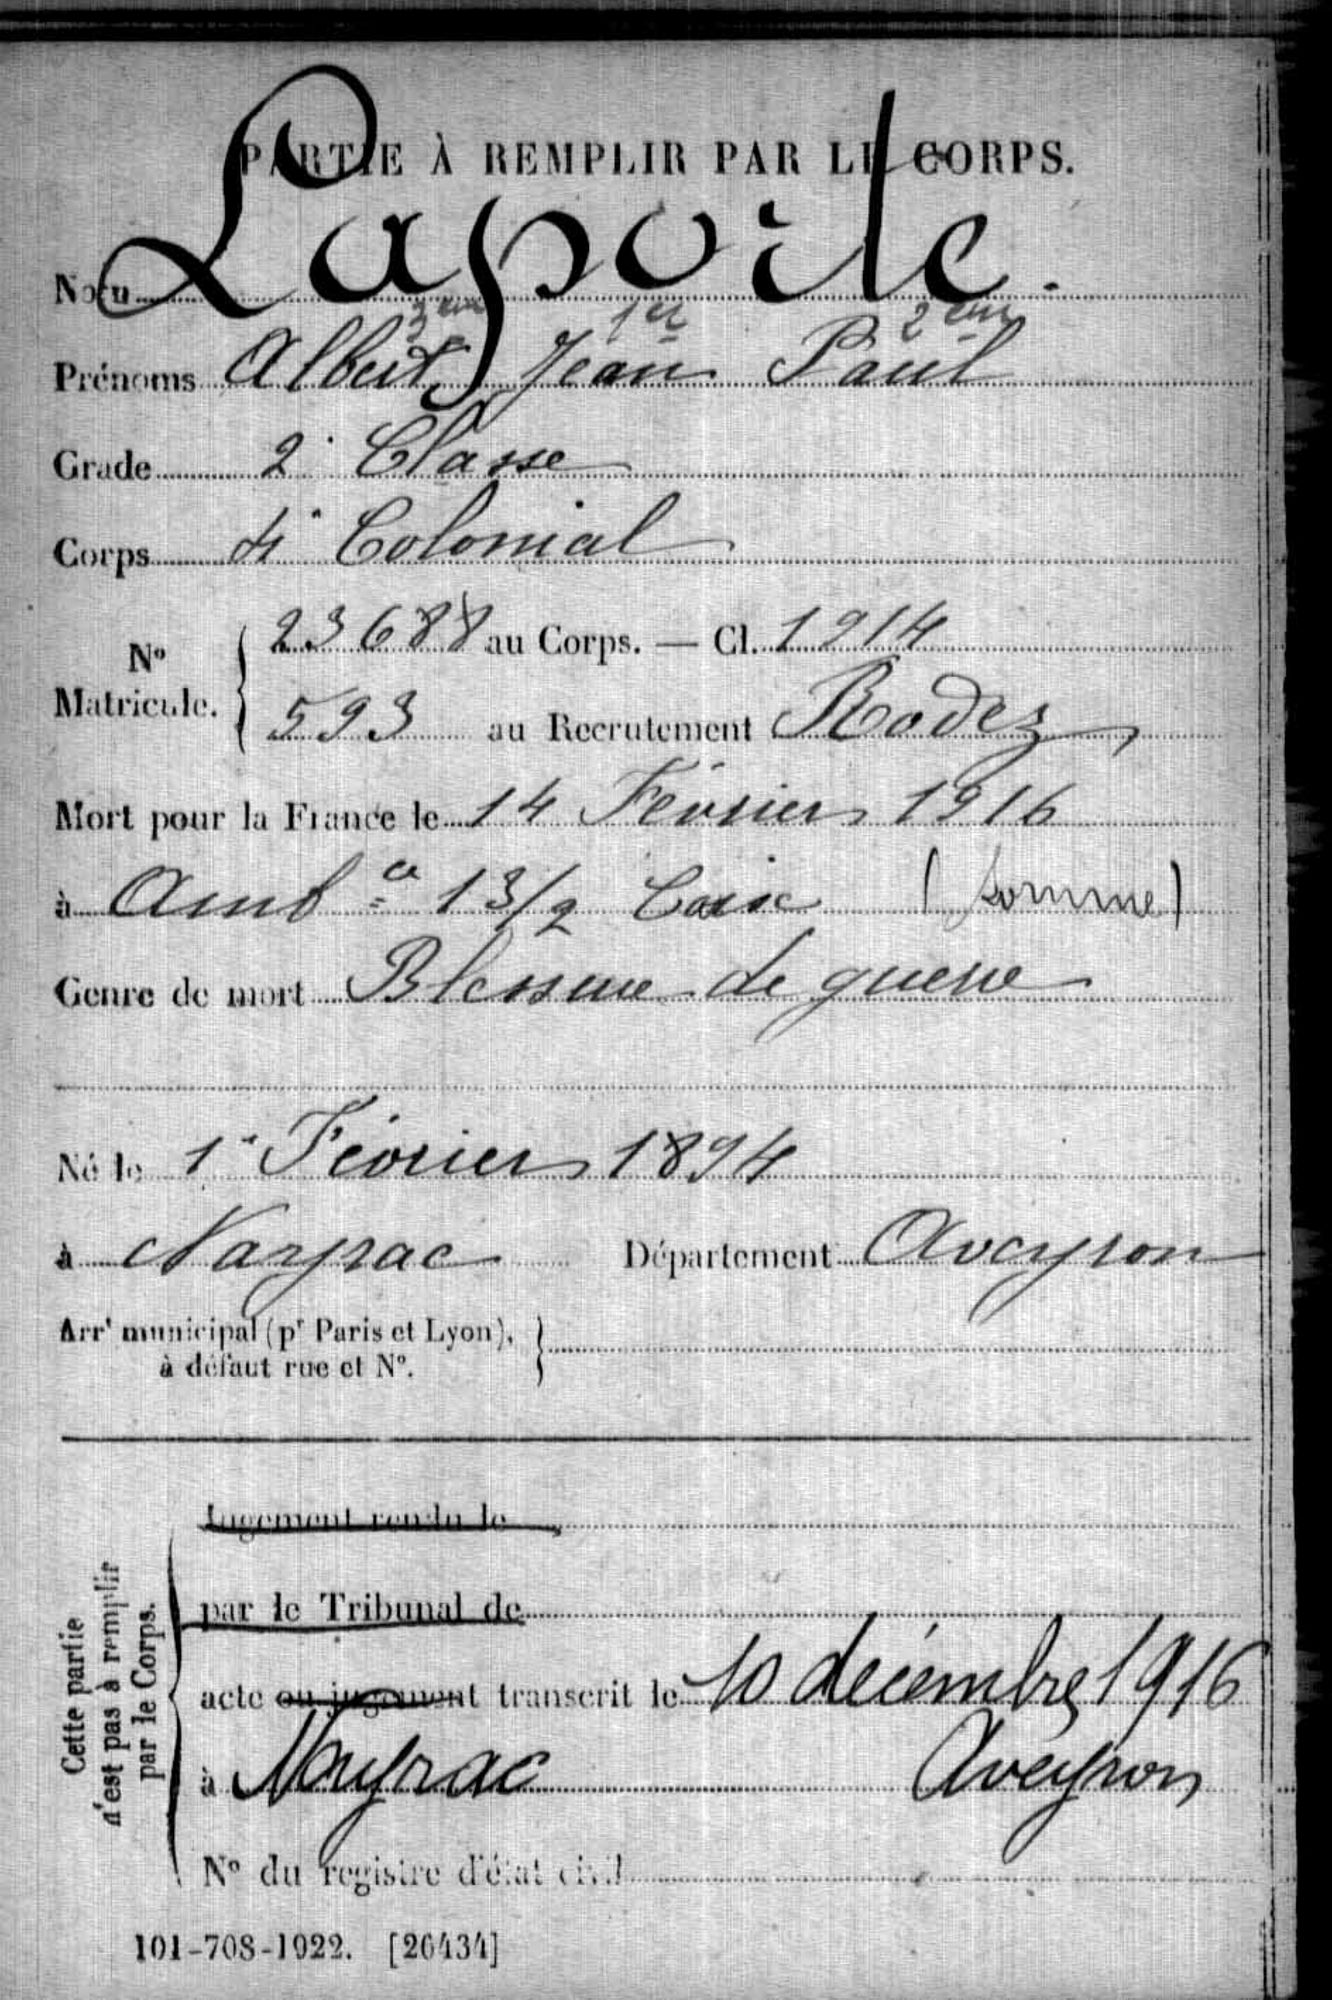 PARTIE À REMPLIR PAR LE CORPS.
Nom Laporte.
3eme 1er 2eme
Prénoms Albert, Jean Paul
Grade 2e Classe
Corps 4e Colonial
No Matricule. { 23688 au Corps. — Cl. 1914
593 au Recrutement Rodez
Mort pour la France le 14 Février 1916
à Ambce 13/2 Caix (Somme)
Genre de mort Blessure de guerre
Né le 1er Février 1894
à Nayrac Département Aveyron
Arrt municipal (pr Paris et Lyon),
à défaut rue et No.
Cette partie
n'est pas à remplir
par le Corps.
Jugement rendu le
par le Tribunal de
acte ou jugement transcrit le 10 décembre 1916
à Nayrac Aveyron
No du registre d'état civil
101-708-1922. [26434]